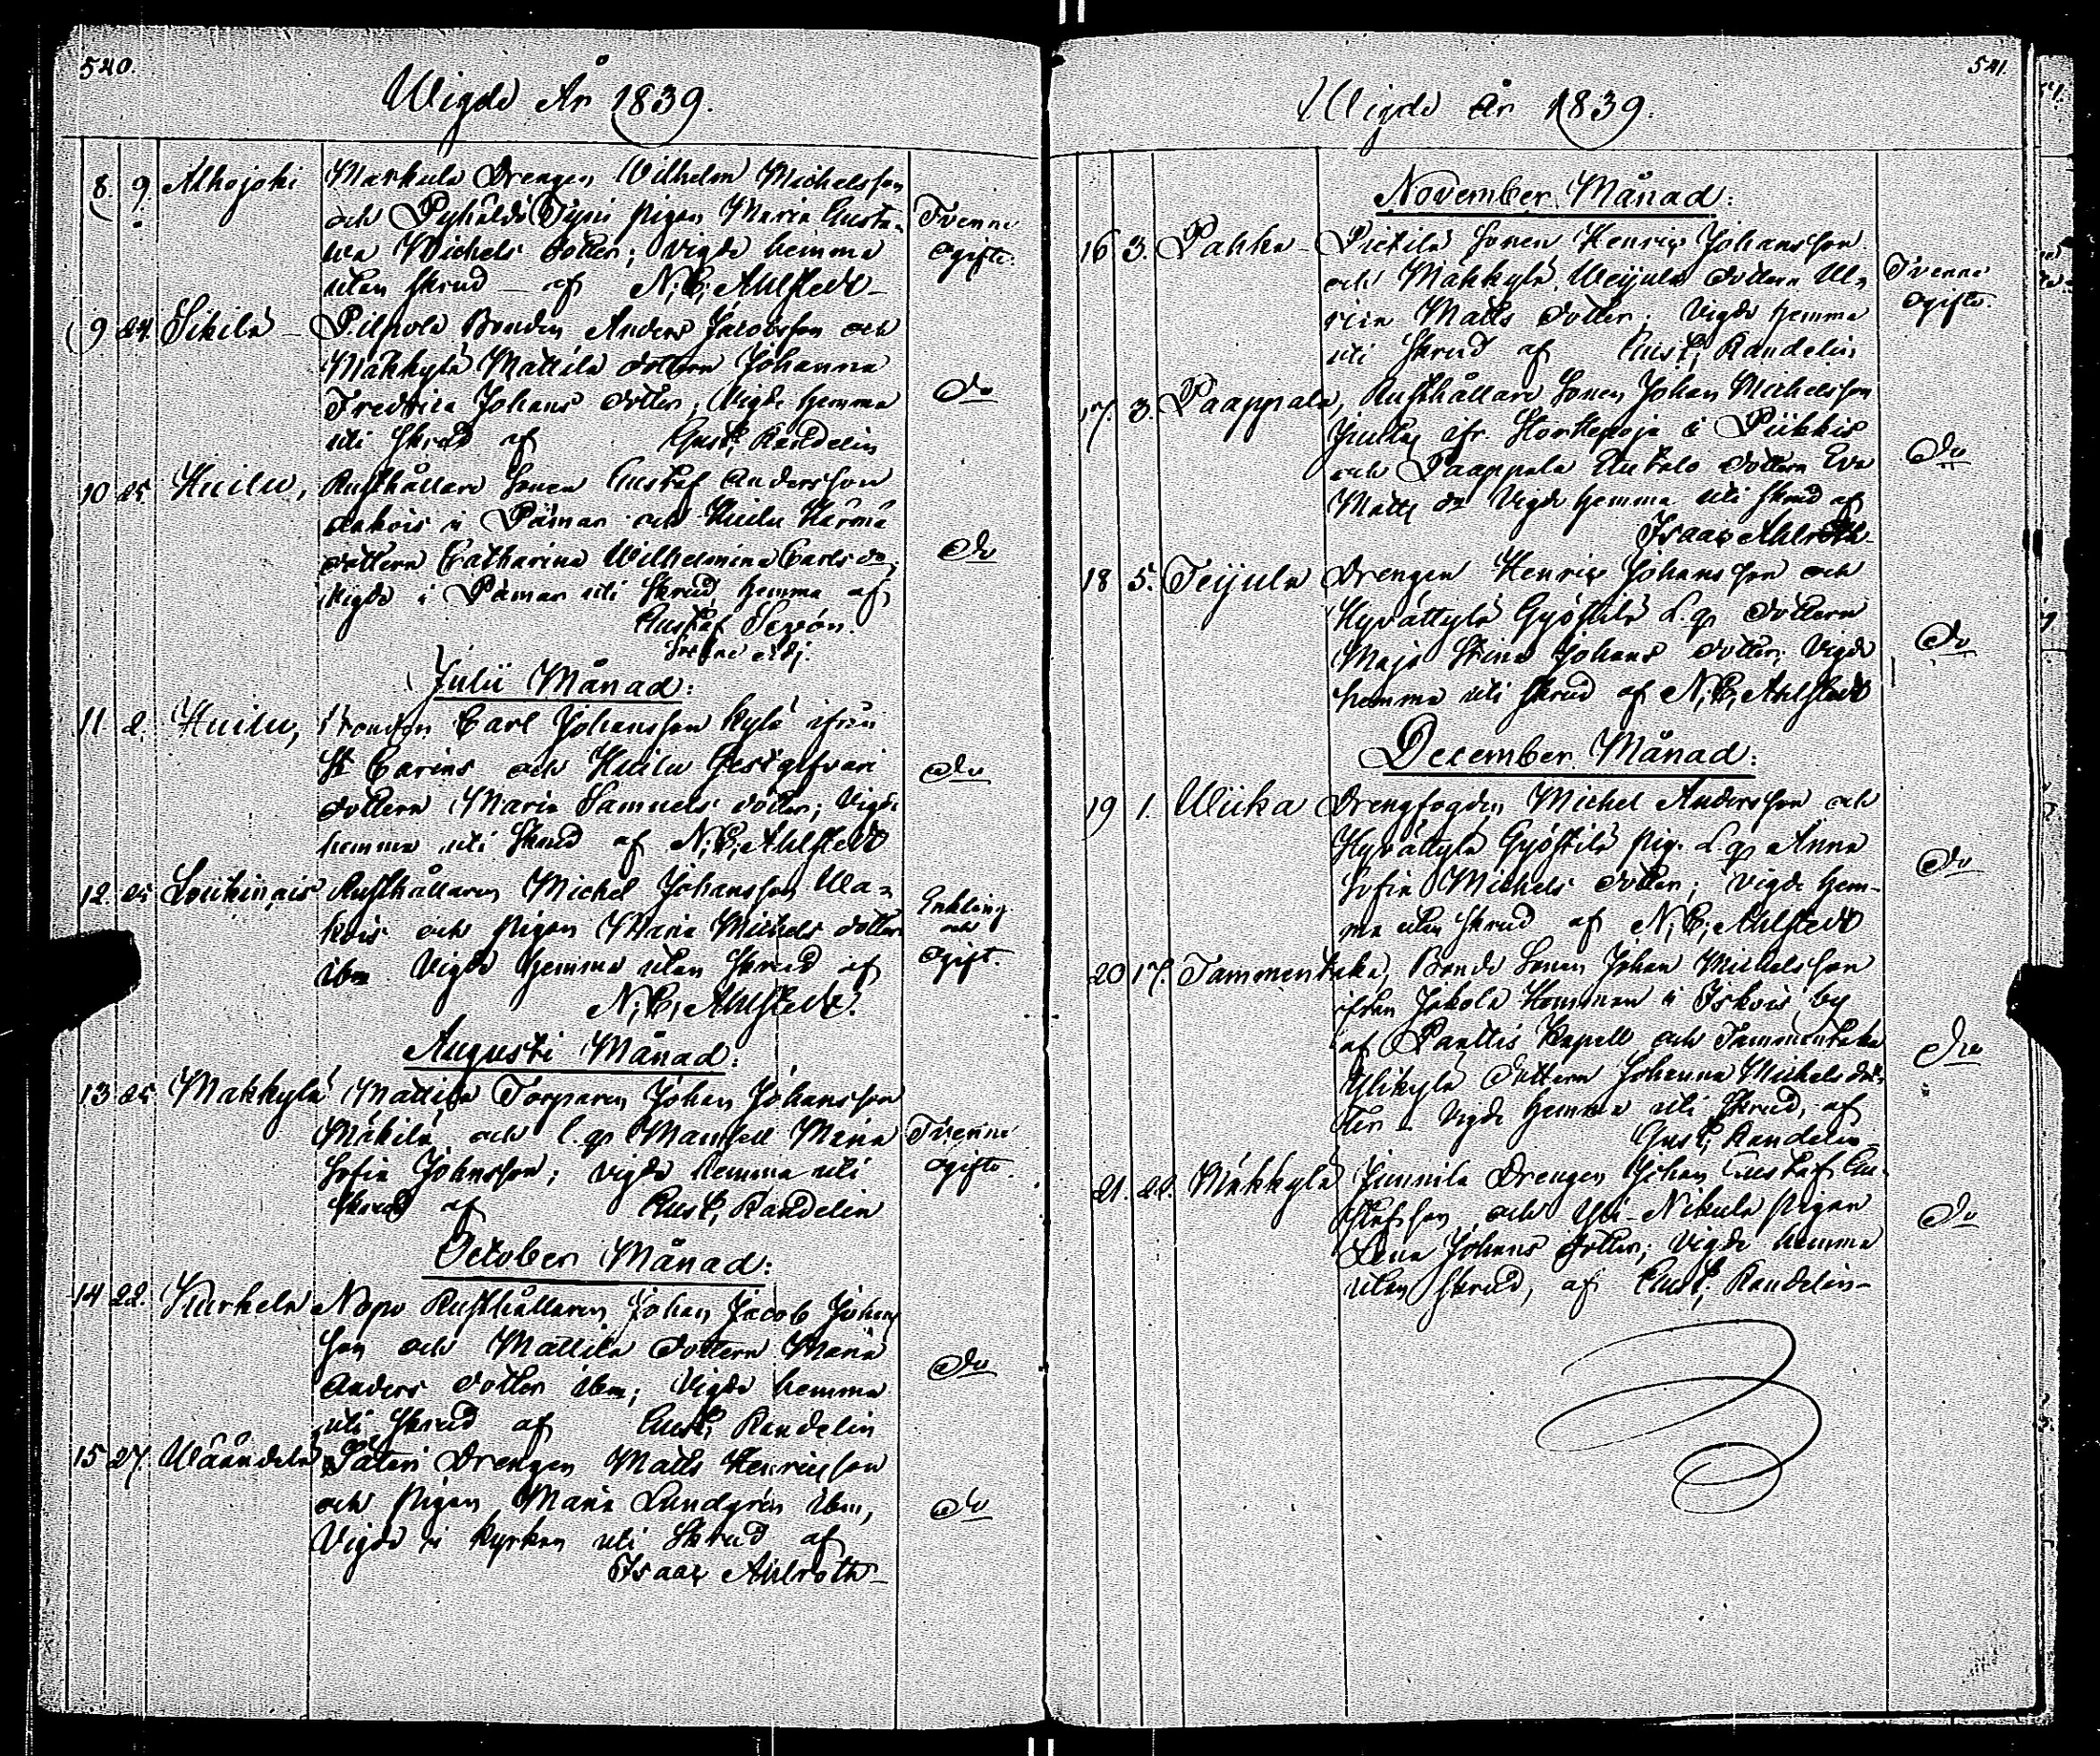 540.
Wigde År 1839.
8. 9. Alhojoki Markula Drengen Wilhelm Michelsson
och Pyhäldö Tyni pigan Maria Gusta-
va Michels dotter; vigde hemma
utan skrud af N; C; Ahlstedt
Tvenne
ogifte.
9 24. Sikilä Pilpola Bonden Anders Jacobsson och
Makkylä Mattila dottern Johanna
Fredrica Johans dotter; Vigde hemma
uti skrud af Gust; Randelin
do
10 25 Huilu, Rusthållare Sonen Gustaf Andersson
i Pämar och Huilu Härmä
dottern Catharina Wilhelmina Carls do;
Vigde i Pämar uti Skrud hemma af
Gustaf
adj.
do
Julii Månad:
11. 2. Huilu, Bonden Carl Johansson Kylä ifrån
St Carins och Huilu Gestgifvari
dottern Maria Samuels dotter; Vigde
hemma uti Skrud af N; C; Ahlstedt
do
12. 25 Loukinais Rusthållaren Michel Johansson Wa-
kois och pigan Maria Michels dotter
ibm Vigde hemma utan skrud af
N; C; Ahlstedt.
Enkling
och
ogift.
Augusti Månad:
13 25 Makkylä Mattila Torparen Johan Johansson
Mäkilä och l. q; Mamsell Maria
Sofia Johnsson; vigde hemma uti
skrud af Gust; Randelin
Tvenne
ogifte.
October Månad:
14 22. Kurkela Nopo Rusthållaren Johan Jacob Johans
son och Mattila dottern Maria
Anders dotter ibm; Vigde hemma
uti skrud af Gust; Randelin
do
15 27. Wäändelä Säteri Drengen Matts Henricsson
och pigan Maria Lundgrén ibm,
Vigde i kyrkan uti Skrud af
Isaac Ahlroth
do
541.
Wigde År 1839.
November Månad:
16 3. Pahka Pietilä Sonen Henric Johansson
och Makkylä Weijula dottern Ul-
rica Matts dotter; Vigde hemma
uti skrud af Gust; Randelin
Tvenne
ogifte
17. 3. Paappala, Rusthållare Sonen Johan Michelsson
ifr. i Piikkis
och Paappala Untalo dottern Eva
Matts do Vigde hemma uti skrud af
Isaac Ahlroth
do
18 5. Teijula Drengen Henric Johansson och
Hyvättylä Gyöstilä l. q; dottern
Maja Stina Johans dotter; Vigde
hemma uti skrud af N; C; Ahlstedt
do
December Månad:
19 1. Wiika Drengfogden Michel Andersson och
Hyvättylä Gyöstilä pig. l. q; Anna
Sofia Michels dotter; vigde hem-
ma utan skrud af N; C; Ahlstedt
do
20 17. Tammentaka, Bonde Sonen Johan Michelsson
ifrån Jakola Hemman i Iskois by
af Pauttis Kapell och Tammentaka
Ulikylä dottern Johanna Michels dot-
ter Vigde hemma uti skrud, af
Gust; Randelin
do
21. 22. Makkylä Junnila Drengen Johan Gustaf Gu-
stafsson och Yli-Nikula pigan
Lena Johans dotter; Vigde hemma
utan skrud, af Gust; Randelin
do